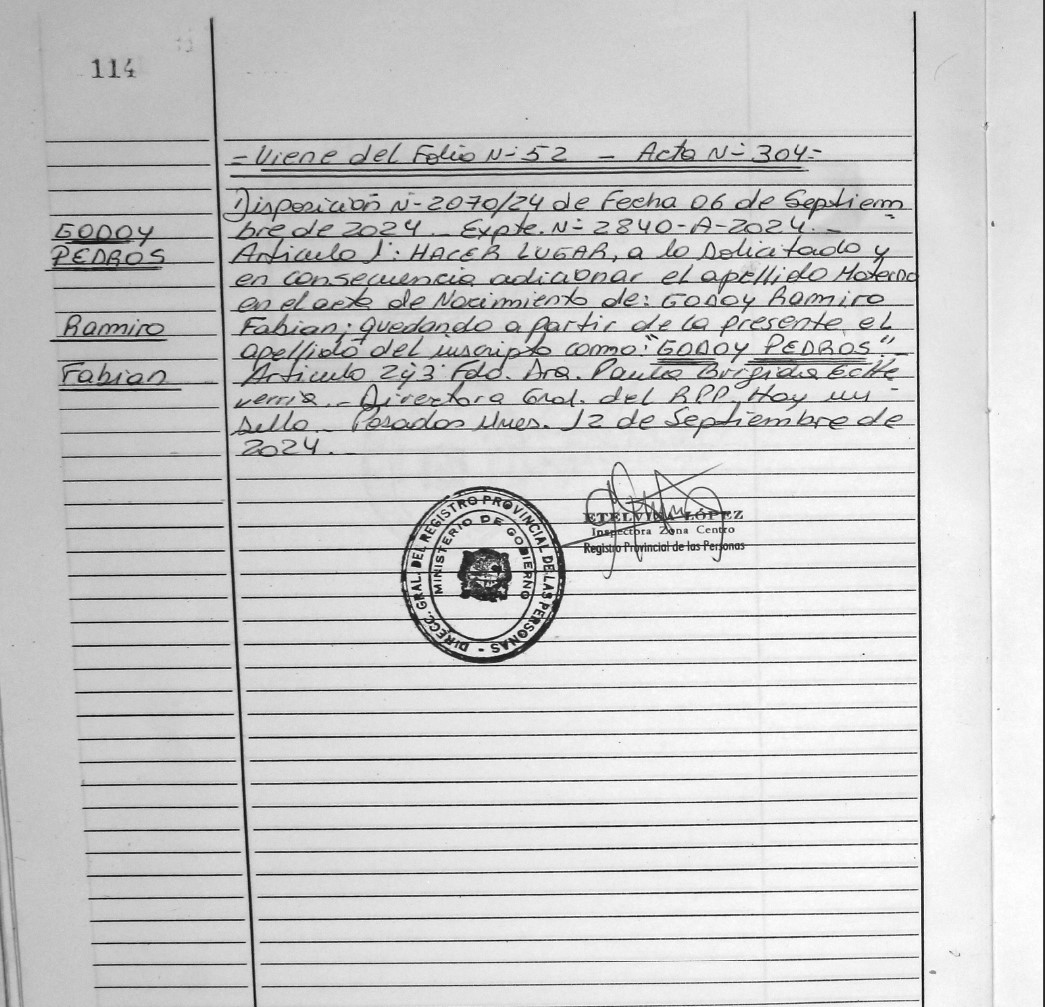 114
- Viene del Folio N- 52 - Acta N- 304 -
Disposición N- 2070/24 de Fecha 06 de Septiem
GODOY
bre de 2024 - Expte. N- 2840-A-2024. -
PEDROS
Articulo 1: HACER LUGAR, a lo solicitado y
en consecuencia adicionar el apellido Materno
en el acta de Nacimiento de: GODOY Ramiro
Ramiro
Fabian; quedando a partir de la presente el
apellido del inscripto como: "GODOY PEDROS"
Fabian
Articulo 2y3 Fdo. Dra. Paula Brigida Eche
verria. - Directora Gral. del RPP, Hay un
sello - Posadas Mnes. 12 de Septiembre de
2024. -
DIRECC. GRAL. DEL REGISTRO PROVINCIAL DE LAS PERSONAS -
MINISTERIO DE GOBIERNO
ETELVINA LÓPEZ
Inspectora Zona Centro
Registro Provincial de las Personas